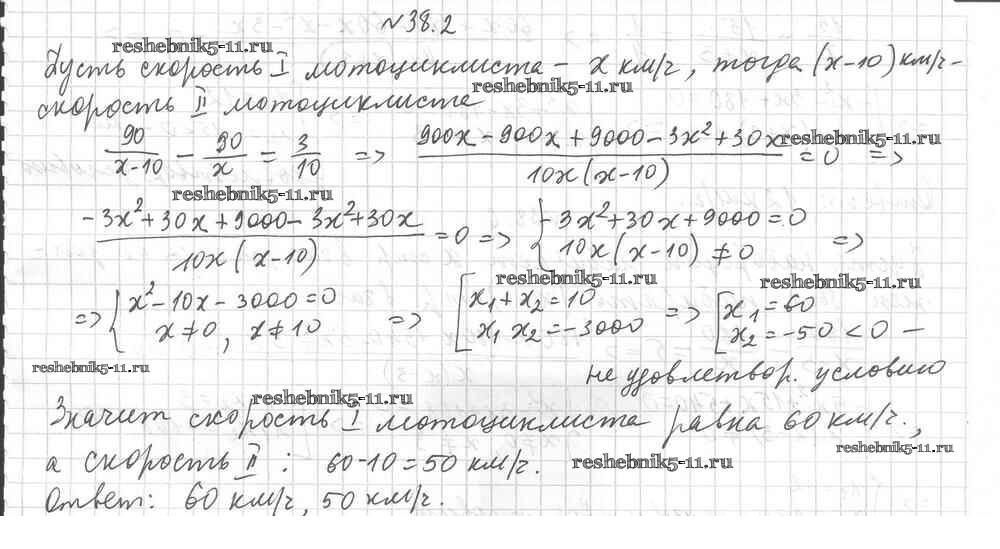 №38.2
reshebnik5-11.ru
Пусть скорость I мотоциклиста – x км/ч, тогда (x-10) км/ч –
reshebnik5-11.ru
скорость II мотоциклиста
90/(x-10) - 90/x = 3/10 => (900x - 900x + 9000 - 3x² + 30x)/(10x(x-10)) = 0 =>
reshebnik5-11.ru
reshebnik5-11.ru
(-3x² + 30x + 9000 - 3x² + 30x)/(10x(x-10)) = 0 => { -3x² + 30x + 9000 = 0
10x(x-10) ≠ 0 =>
reshebnik5-11.ru
reshebnik5-11.ru
=> { x² - 10x - 3000 = 0
x ≠ 0, x ≠ 10 => [ x₁ + x₂ = 10
x₁ x₂ = -3000 => [ x₁ = 60
x₂ = -50 < 0 –
reshebnik5-11.ru
не удовлетвор. условию
reshebnik5-11.ru
Значит скорость I мотоциклиста равна 60 км/ч.,
reshebnik5-11.ru
а скорость II : 60-10=50 км/ч.
reshebnik5-11.ru
Ответ: 60 км/ч, 50 км/ч.